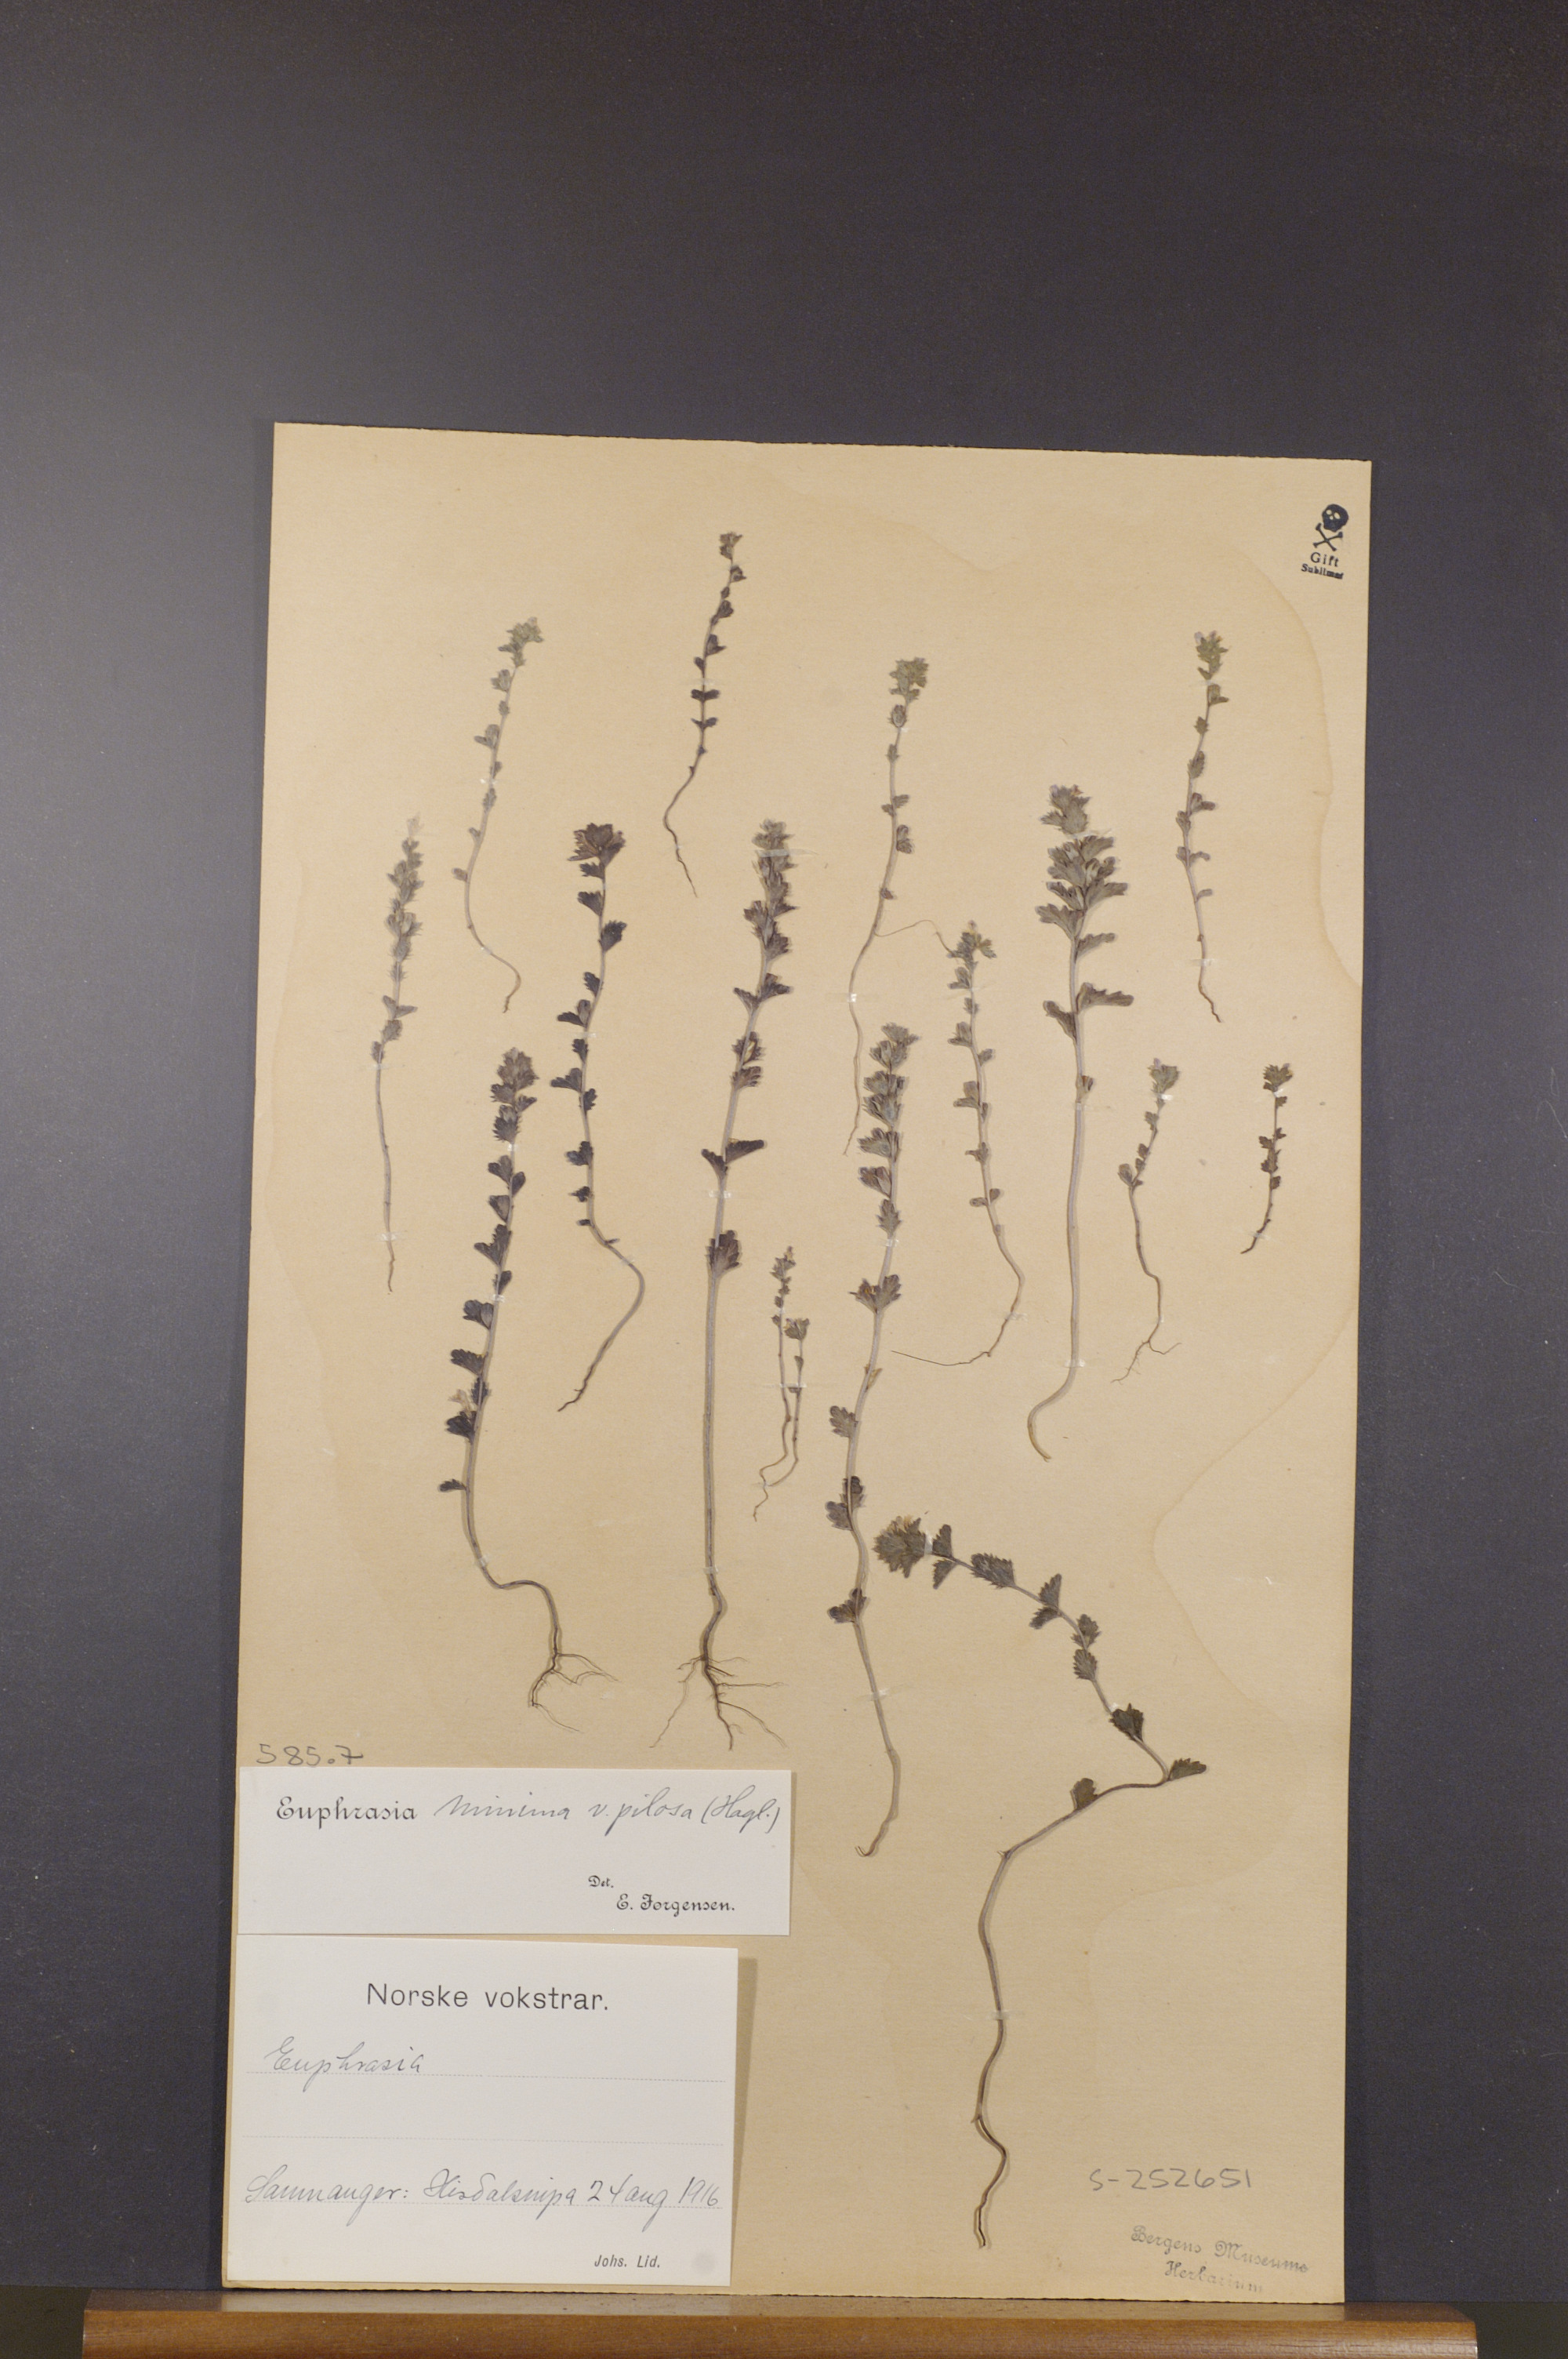 Gift
Sublimat
585.7
Euphrasia minima v. pilosa (Hagl.)
Det.
E. Jorgensen.
Norske vokstrar.
Euphrasia
Samnanger: Hisdalsnipa 24 aug 1916
Johs. Lid.
S-252651
Bergens Museums
Herbarium